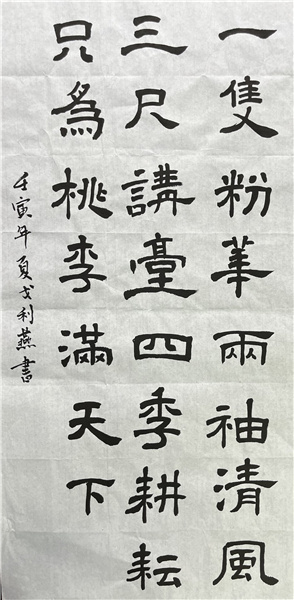 一隻粉筆兩袖清風
三尺講臺四季耕耘
只爲桃李滿天下
壬寅年夏戈利燕書